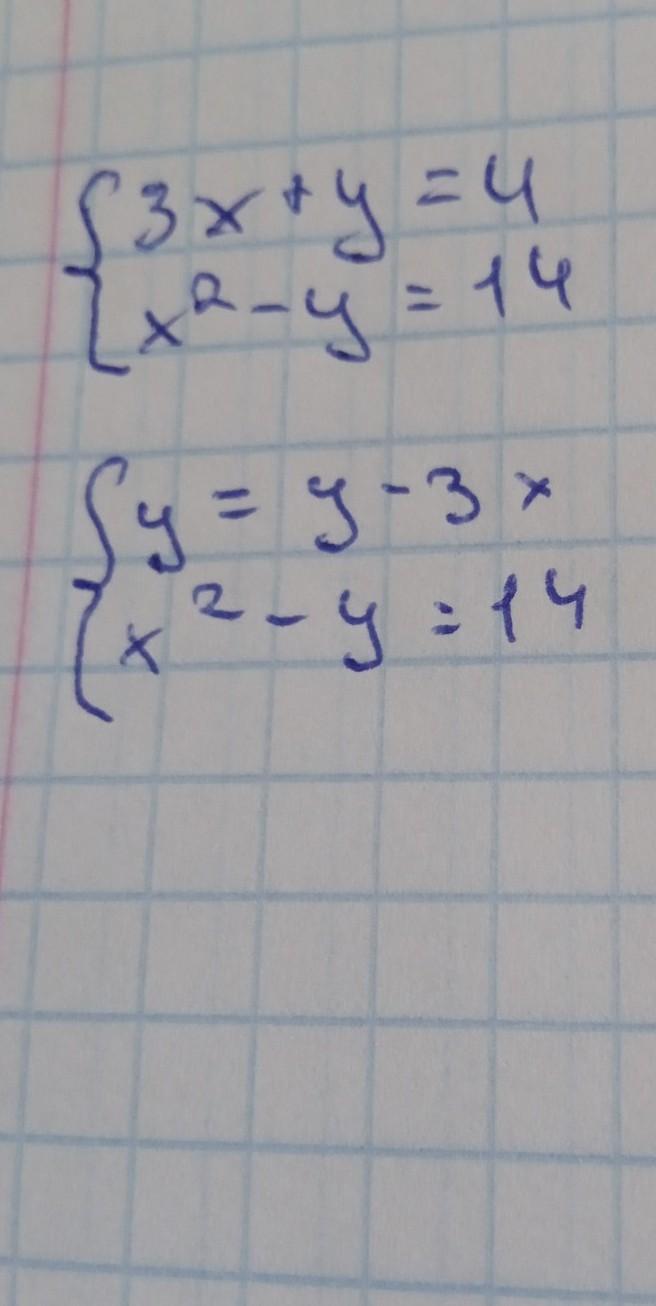 3x+y=4
x²-y=14
y=y-3x
x²-y=14